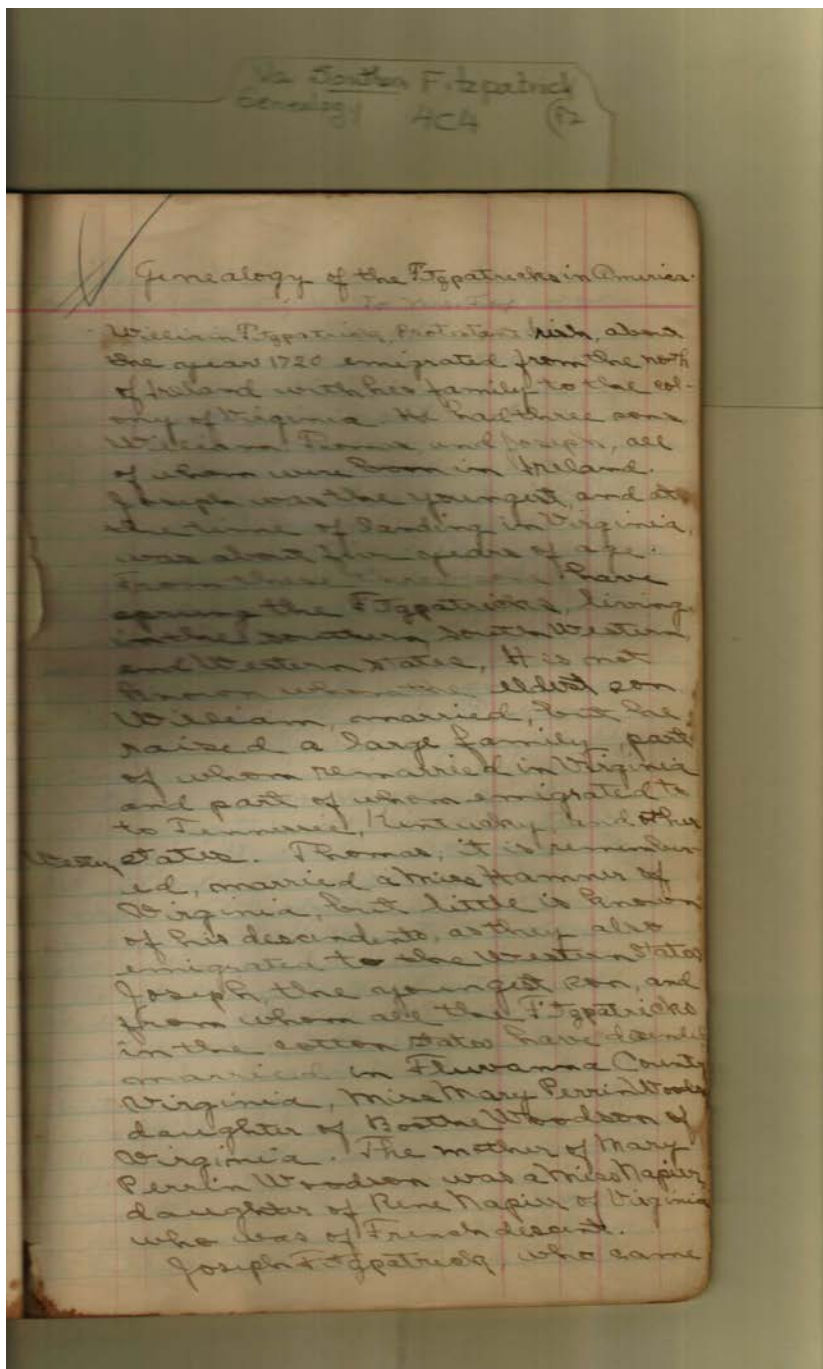 Va Southern Fitzpatrick
Genealogy 4C4 P2
Genealogy of the Fitzpatricks in America.
William Fitzpatrick, Protestant Irish, about
the year 1720 emigrated from the north
of Ireland with his family to the col-
ony of Virginia. He had three sons
William Thomas and Joseph, all
of whom were born in Ireland.
Joseph was the youngest, and at
the time of landing in Virginia,
was about five years of age.
From these three sons have
sprung the Fitzpatricks, living
in the southern South Western
and Western States, It is not
known whom the eldest son
William, married, but he
raised a large family, part
of whom remarried in Virginia
and part of whom emigrated to
to Tennessee, Kentucky, and other
Western States. Thomas, it is remember-
ed, married a Miss Hamner of
Virginia, but little is known
of his descendents, as they also
emigrated to the Western States
Joseph, the youngest son, and
from whom all the Fitzpatricks
in the cotton States have
married in Fluvanna County
Virginia, Miss Mary Perrin Woods
daughter of Woodson of
Virginia. The mother of Mary
Perrin Woodson was a Miss Napier,
daughter of Rene Napier of Virginia
who was of French descent.
Joseph Fitzpatrick, who came